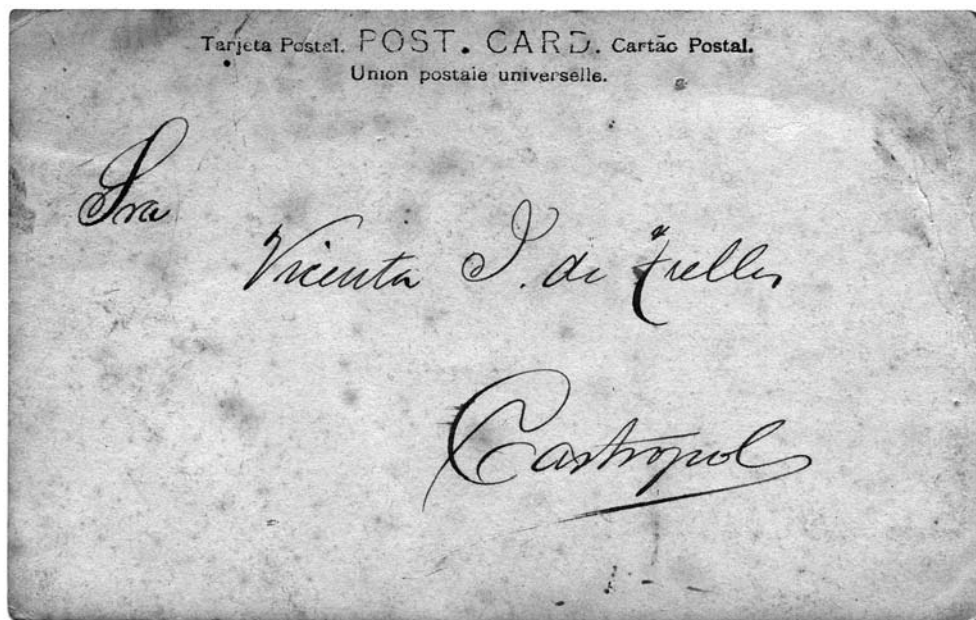 Tarjeta Postal. POST. CARD. Cartão Postal.
Union postale universelle.
Sra
Vicenta J. de Trelles
Castropol